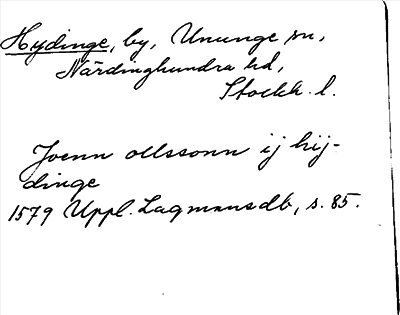 Hydinge, by, Ununge sn,
Närdinghundra hd,
Stockh. l.
Joenn ollssonn ij hij-
dinge
1579 Uppl. Lagmansdb, s. 85.